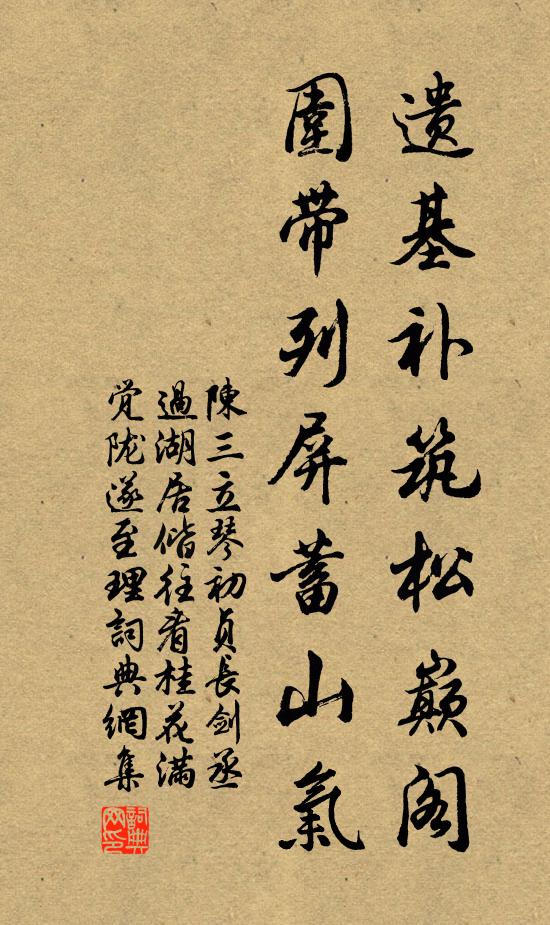 遗基补筑松巅阁
圍带列屏蓄山氣
陳三立琴初貞長剑丞
過湖居偕往看桂花满
觉陇遂至理詞典網集
詞典网印